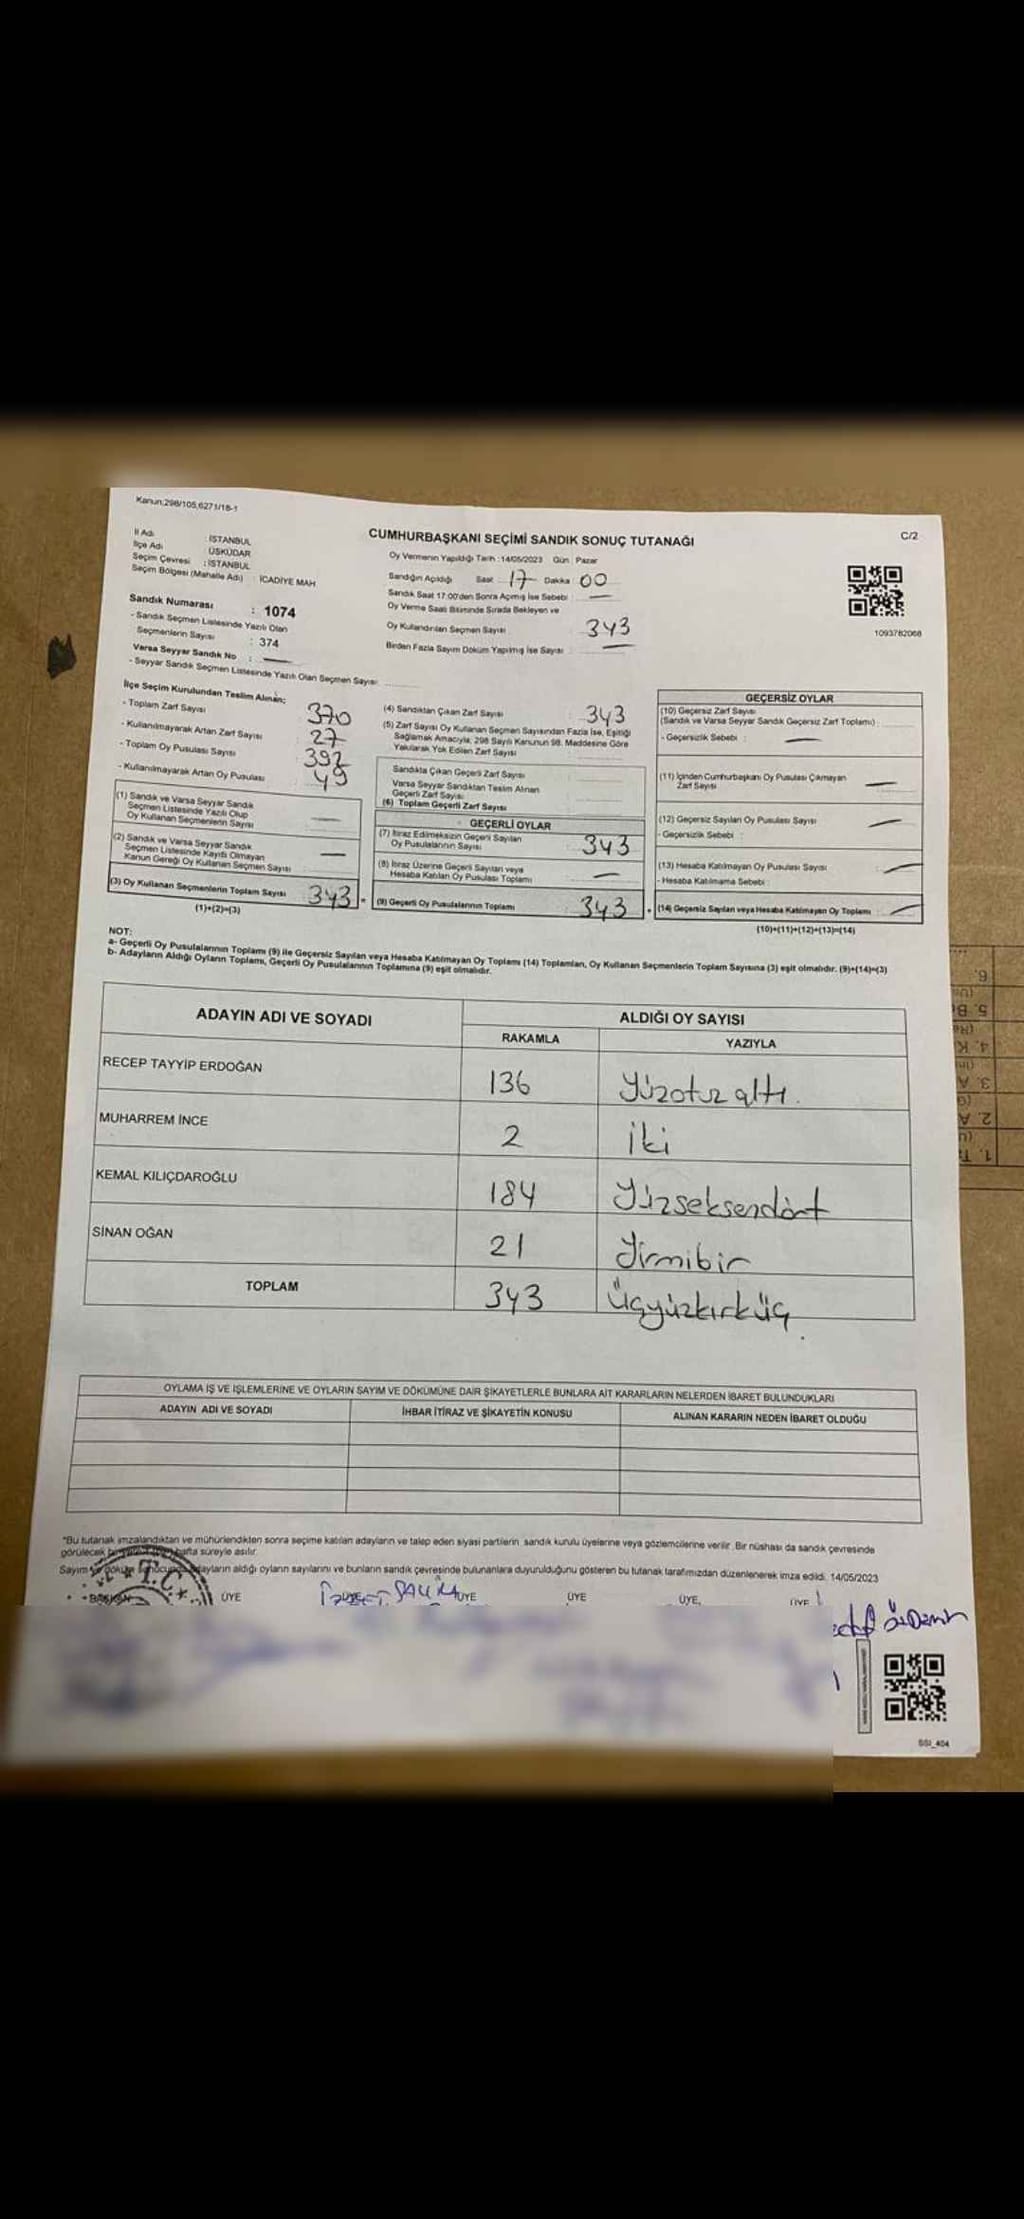 Kanun:298/105,6271/18-1
C/2
İl Adı : İSTANBUL
İlçe Adı : ÜSKÜDAR
Seçim Çevresi : İSTANBUL
Seçim Bölgesi (Mahalle Adı) : İCADİYE MAH
Sandık Numarası : 1074
- Sandık Seçmen Listesinde Yazılı Olan
Seçmenlerin Sayısı : 374
Varsa Seyyar Sandık No : —
- Seyyar Sandık Seçmen Listesinde Yazılı Olan Seçmen Sayısı
CUMHURBAŞKANI SEÇİMİ SANDIK SONUÇ TUTANAĞI
Oy Vermenin Yapıldığı Tarih : 14/05/2023 Gün : Pazar
Sandığın Açıldığı Saat : 17 Dakika 00
Sandık Saat 17:00'den Sonra Açılmış İse Sebebi : —
Oy Verme Saati Bitiminde Sırada Bekleyen ve
Oy Kullandırılan Seçmen Sayısı 343
Birden Fazla Sayım Döküm Yapılmış İse Sayısı : —
1093782068
İlçe Seçim Kurulundan Teslim Alınan;
- Toplam Zarf Sayısı 370
- Kullanılmayarak Artan Zarf Sayısı 27
- Toplam Oy Pusulası Sayısı 392
- Kullanılmayarak Artan Oy Pusulası 49
(1) Sandık ve Varsa Seyyar Sandık
Seçmen Listesinde Yazılı Olup
Oy Kullanan Seçmenlerin Sayısı —
(2) Sandık ve Varsa Seyyar Sandık
Seçmen Listesinde Kayıtlı Olmayan
Kanun Gereği Oy Kullanan Seçmen Sayısı —
(3) Oy Kullanan Seçmenlerin Toplam Sayısı 343 =
(1)+(2)=(3)
(4) Sandıktan Çıkan Zarf Sayısı : 343
(5) Zarf Sayısı Oy Kullanan Seçmen Sayısından Fazla İse, Eşitliği
Sağlamak Amacıyla, 298 Sayılı Kanunun 98. Maddesine Göre
Yakılarak Yok Edilen Zarf Sayısı
Sandıkta Çıkan Geçerli Zarf Sayısı
Varsa Seyyar Sandıktan Teslim Alınan
Geçerli Zarf Sayısı
(6) Toplam Geçerli Zarf Sayısı
GEÇERLİ OYLAR
(7) İtiraz Edilmeksizin Geçerli Sayılan
Oy Pusulalarının Sayısı 343
(8) İtiraz Üzerine Geçerli Sayılan veya
Hesaba Katılan Oy Pusulası Toplamı —
(9) Geçerli Oy Pusulalarının Toplamı 343 +
GEÇERSİZ OYLAR
(10) Geçersiz Zarf Sayısı
(Sandık ve Varsa Seyyar Sandık Geçersiz Zarf Toplamı) :
- Geçersizlik Sebebi : —
(11) İçinden Cumhurbaşkanı Oy Pusulası Çıkmayan
Zarf Sayısı —
(12) Geçersiz Sayılan Oy Pusulası Sayısı —
- Geçersizlik Sebebi :
(13) Hesaba Katılmayan Oy Pusulası Sayısı —
- Hesaba Katılmama Sebebi :
(14) Geçersiz Sayılan veya Hesaba Katılmayan Oy Toplamı —
(10)+(11)+(12)+(13)=(14)
NOT:
a- Geçerli Oy Pusulalarının Toplamı (9) ile Geçersiz Sayılan veya Hesaba Katılmayan Oy Toplamı (14) Toplamları, Oy Kullanan Seçmenlerin Toplam Sayısına (3) eşit olmalıdır. (9)+(14)=(3)
b- Adayların Aldığı Oyların Toplamı, Geçerli Oy Pusulalarının Toplamına (9) eşit olmalıdır.
ADAYIN ADI VE SOYADI ALDIĞI OY SAYISI
RAKAMLA YAZIYLA
RECEP TAYYİP ERDOĞAN 136 Yüzotuz altı.
MUHARREM İNCE 2 iki
KEMAL KILIÇDAROĞLU 184 Yüzseksendört
SİNAN OĞAN 21 Yirmibir
TOPLAM 343 Üçyüzkırküç.
OYLAMA İŞ VE İŞLEMLERİNE VE OYLARIN SAYIM VE DÖKÜMÜNE DAİR ŞİKAYETLERLE BUNLARA AİT KARARLARIN NELERDEN İBARET BULUNDUKLARI
ADAYIN ADI VE SOYADI İHBAR İTİRAZ VE ŞİKAYETİN KONUSU ALINAN KARARIN NEDEN İBARET OLDUĞU
*Bu tutanak imzalandıktan ve mühürlendikten sonra seçime katılan adayların ve talep eden siyasi partilerin sandık kurulu üyelerine veya gözlemcilerine verilir. Bir nüshası da sandık çevresinde
görülecek hafta süreyle asılır.
Sayım adayların aldığı oyların sayılarını ve bunların sandık çevresinde bulunanlara duyurulduğunu gösteren bu tutanak tarafımızdan düzenlenerek imza edildi. 14/05/2023
T.C.
BAŞKAN ÜYE ÜYE ÜYE ÜYE ÜYE